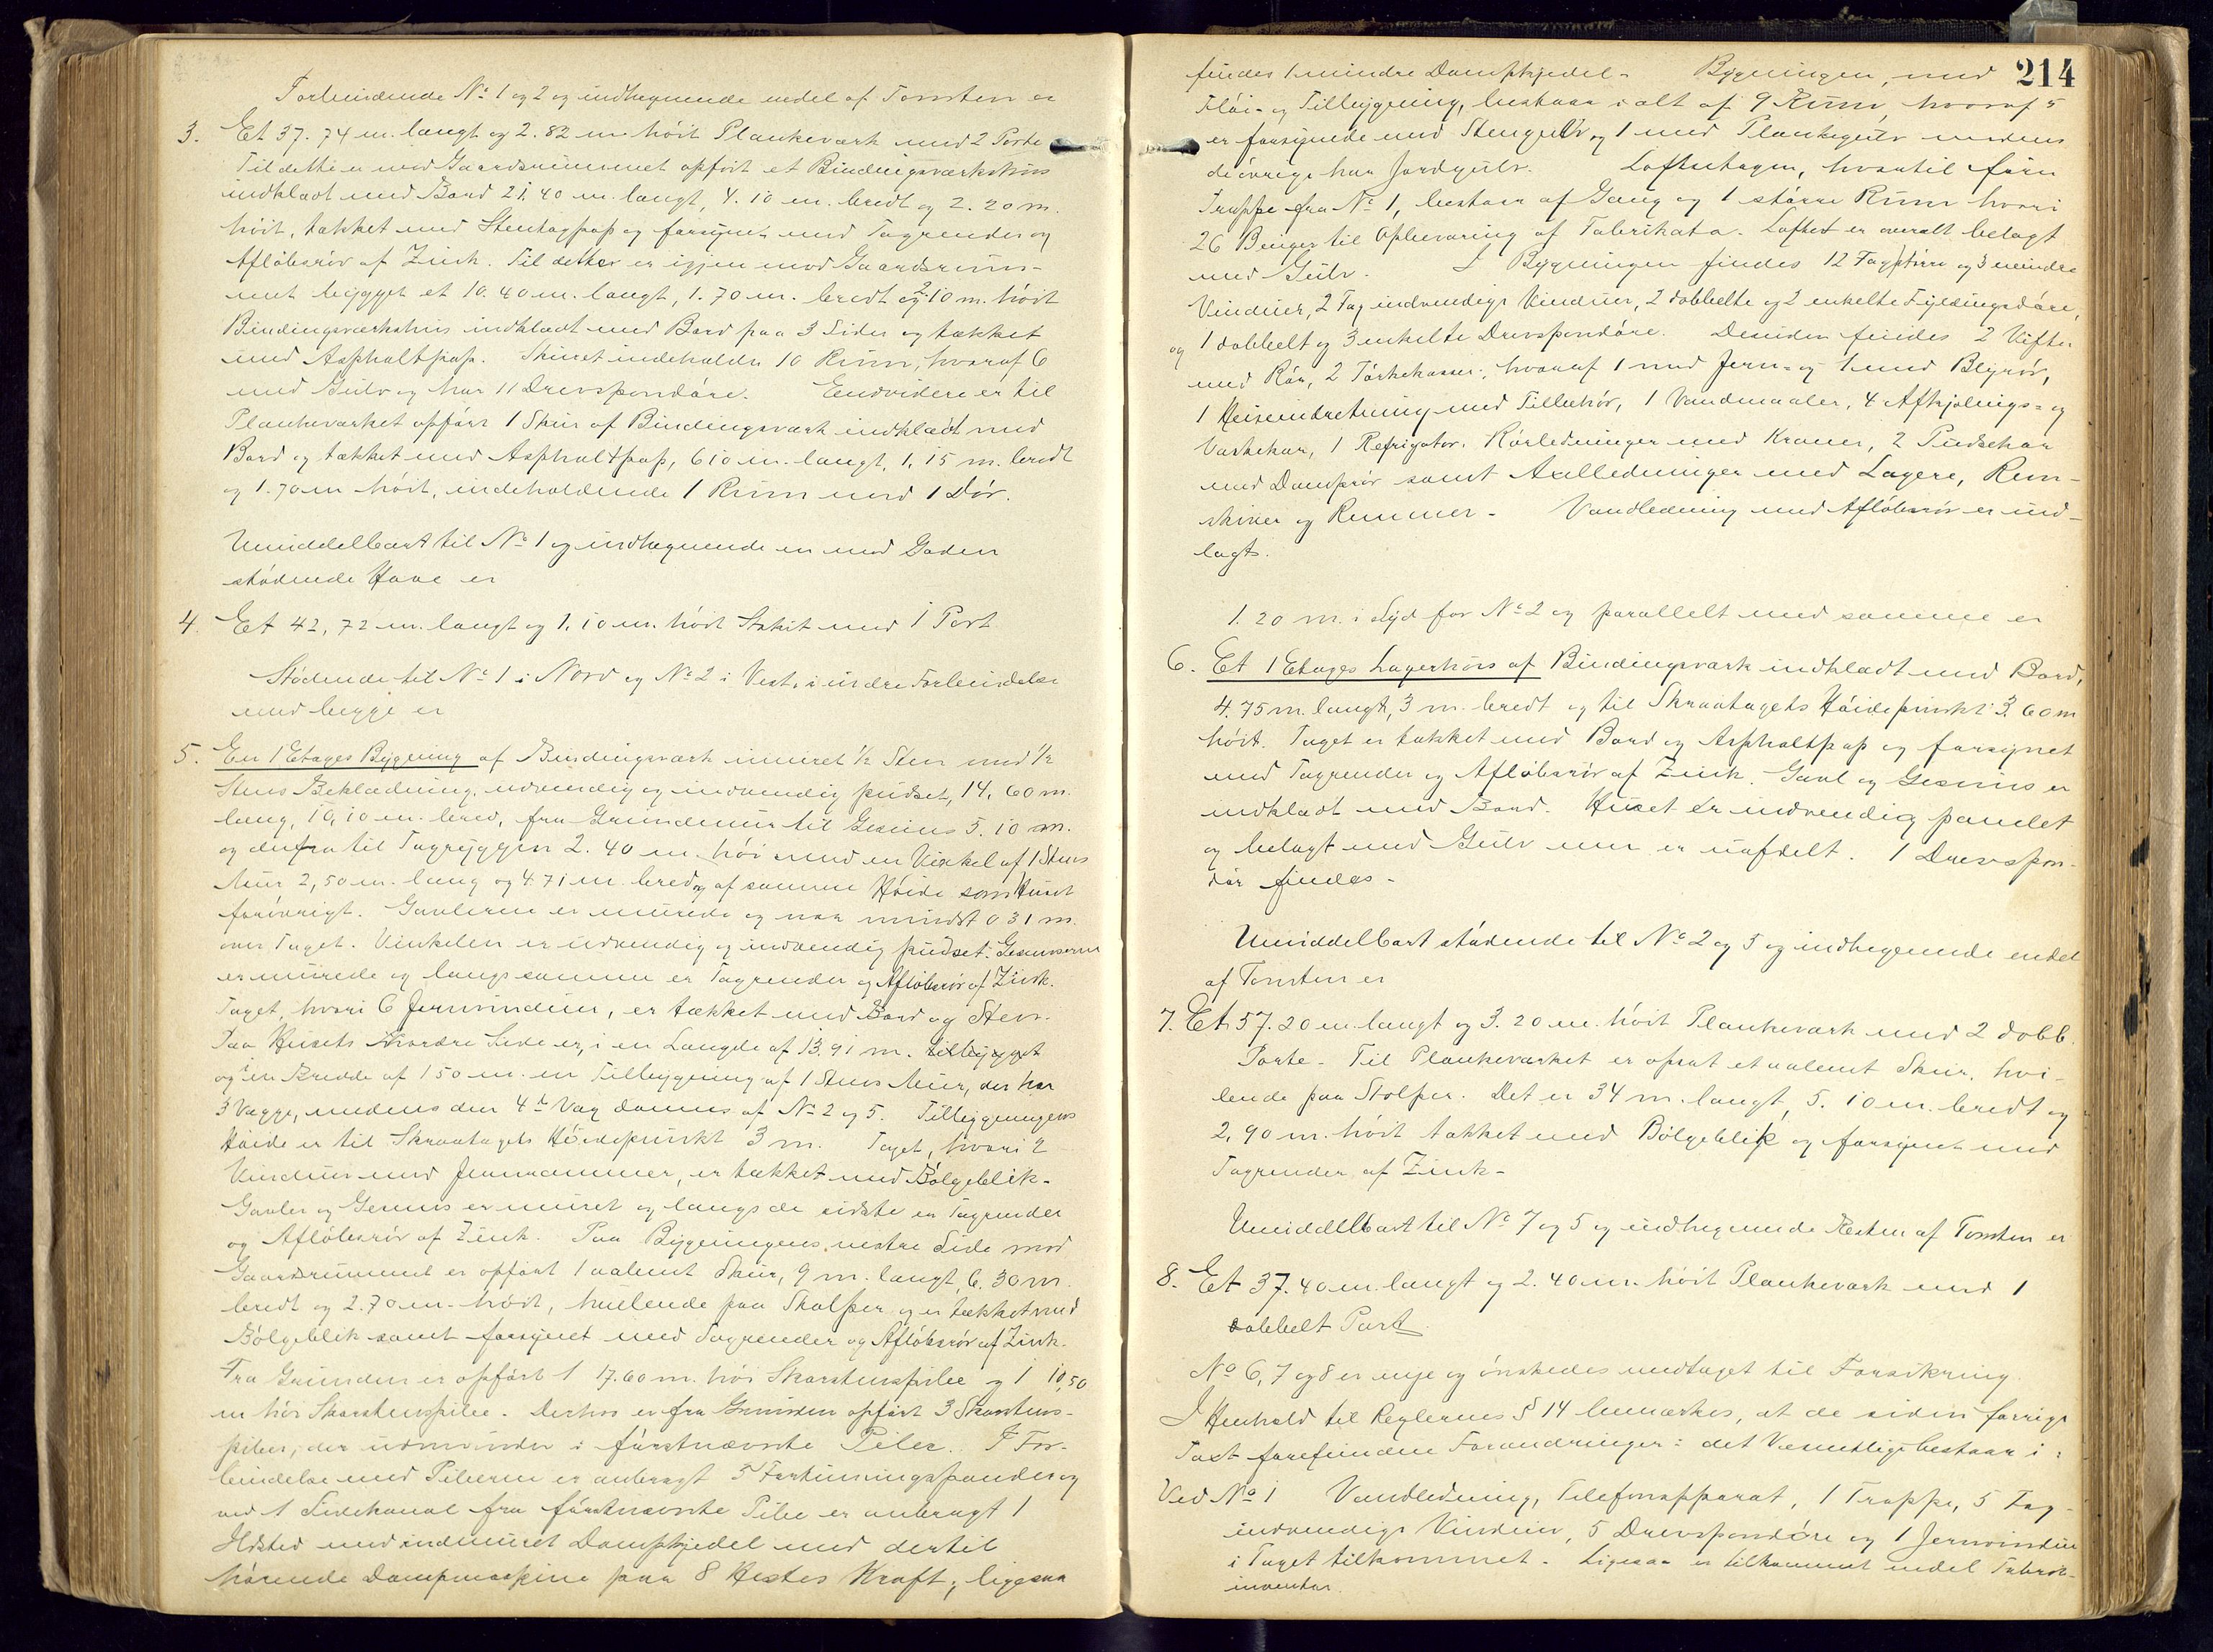 Forbindende No 1 og 2 og indhegnende endel af Tomten er
3. Et 37.74 m. langt og 2.82 m. høit Plankeværk med 2 Porte
Til dette er mod Gaardsrummet opført et Bindingsværksskur
indklædt med Bord 21.40 m. langt, 4.10 m. bredt og 2.20 m.
høit, tækket med Stentagpap og forsynet med Tagrender og
Afløbsrør af Zink. Til dette er igjen mod Gaardsrum-
met bygget et 10.40 m. langt, 1.70 m. bredt og 2.10 m. høit
Bindingsværksskur indklædt med Bord paa 3 Sider og tækket
med Asphaltpap. Skuret indeholder 10 Rum, hvoraf 6
med Gulv og har 11 Drevspondøre. Endvidere er til
Plankeværket opført 1 Skur af Bindingsværk indklædt med
Bord og tækket med Asphaltpap, 6.10 m. langt, 1.15 m. bredt
og 1.70 m høit, indeholdende 1 Rum med 1 Dør.
Umiddelbart til No 1 og indhegnende en mod Gaden
stødende Have er
4. Et 42,72 m. langt og 1.10 m. høit Stakit med 1 Port
Stødende til No 1 i Nord og No 2 i Vest, i indre Forbindelse
med begge er
5. En 1 Etages Bygning af Bindingsværk inmuret ½ Sten med ½
Stens Beklædning, udvendig og indvendig pudset, 14.60 m.
lang, 10,10 m. bred, fra Grundmur til Gesims 5.10 m.
og derfra til Tagryggen 2.40 m. høi med en Vinkel af 1 Stens
Mur 2,50 m. lang og 4.71 m. bred og af samme Høide som Huset
forøvrigt. Gavlerne er murede og naa mindst 0 31 m.
over Taget. Vinkelen er udvendig og indvendig pudset. Gesimserne
er murede og langs samme er Tagrender og Afløbsrør af Zink.
Taget, hvori 6 Jernvinduer, er tækket med Bord og Sten.
Paa Husets nordre Side er, i en Længde af 13.91 m. tilbygget
og i en Bredde af 1 50 m. en Tilbygning af 1 Stens Mur, der har
3 Vægge, medens den 4de Væg dannes af No 2 og 5. Tilbygningens
Høide er til Skraatagets Høidepunkt 3 m. Taget, hvori 2
Vinduer med Jernrammer, er tækket med Bølgeblik.
Gavler og Gesims er muret og langs de sidste er Tagrender
og Afløbsrør af Zink. Paa Bygningens vestre Side mod
Gaardsrummet er opført 1 aabent Skur, 9 m. langt, 6.30 m.
bredt og 2.70 m. høit, hvilende paa Stolper og er tækket med
Bølgeblik samt forsynet med Tagrender og Afløbsrør af Zink.
Fra Grunden er opført 1 17.60 m. høi Skorstenspibe og 1 10,50
m høi Skorstenspibe. Derhos er fra Grunden opført 3 Skorstens-
piber, der udmunder i førstnævnte Piber. I For-
bindelse med Piberne er anbragt 5 Fortinningspander og
ved 1 Sidekanal fra førstnævnte Pibe er anbragt 1
Ildsted med indmuret Dampkjedel med dertil
hørende Dampmaskine paa 8 Hestes Kraft; ligesaa
214
findes 1 mindre Dampkjedel. Bygningen, med
Fløi- og Tilbygning, bestaar i alt af 9 Rum, hvoraf 5
er forsynede med Stengulv og 1 med Plankegulv medens
de øvrige har Jordgulv. Loftsetagen, hvortil fører
Trappe fra No 1, bestaar af Gang og 1 større Rum hvori
26 Binger til Opbevaring af Fabrikata. Loftet er overalt belagt
med Gulv. I Bygningen findes 12 Fag større og 3 mindre
Vinduer, 2 Fag indvendige Vinduer, 2 dobbelte og 2 enkelte Fyldingsdøre,
og 1 dobbelt og 3 enkelte Drevspondøre. Desuden findes 2 Vifter
med Rør, 2 Tørkekasser, hvoraf 1 med Jern- og 1 med Blyrør,
1 Heiseindretning med Tilbehør, 1 Vandmaaler, 4 Afkjølings- og
Vaskekar, 1 Refrigator. Rørledninger med Kraner, 2 Pudsekar
med Damprør samt Axelledninger med Lagere, Rem-
skiver og Remmer. Vandledning med Afløbsrør er ind-
lagt.
1.20 m. i Syd for No 2 og parallelt med samme er
6. Et 1 Etages Lagerhus af Bindingsværk indklædt med Bord,
4.75 m. langt, 3 m. bredt og til Skraatagets Høidepunkt 3.60 m
høit. Taget er tækket med Bord og Asphaltpap og forsynet
med Tagrender og Afløbsrør af Zink. Gavl og Gesims er
indklædt med Bord. Huset er indvendig panelet
og belagt med Gulv men er uafdelt. 1 Drevspon-
dør findes.
Umiddelbart stødende til No 2 og 5 og indhegnende endel
af Tomten er
7. Et 57.20 m. langt og 3.20 m. høit Plankeværk med 2 dobb.
Porte. Til Plankeværket er opsat et aabent Skur, hvi-
lende paa Stolper. Det er 34 m. langt, 5.10 m. bredt og
2,90 m. høit tækket med Bølgeblik og forsynet med
Tagrender af Zink.
Umiddelbart til No 7 og 5 og indhegnende Resten af Tomten er
8. Et 37.40 m. langt og 2.40 m. høit Plankeværk med 1
dobbelt Port
No 6, 7 og 8 er nye og ønskedes medtaget til Forsikring.
I Henhold til Reglernes § 14 bemærkes, at de siden forrige
Taxt forefundne Forandringer i det Væsentlige bestaar i:
Ved No 1 Vandledning, Telefonapparat, 1 Trappe, 5 Fag
indvendige Vinduer, 5 Drevspondøre og 1 Jernvindu
i Taget tilkommet. Ligesaa er tilkommet endel Fabrik-
inventar.